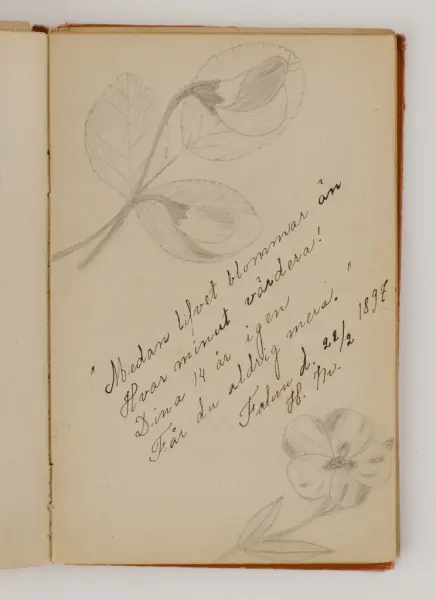 "Medan lifvet blommar än
Hvar minut värdera!
Dina 14 år igen
Får du aldrig mera."
Falun d. 22/2 1897.
H. Hr.